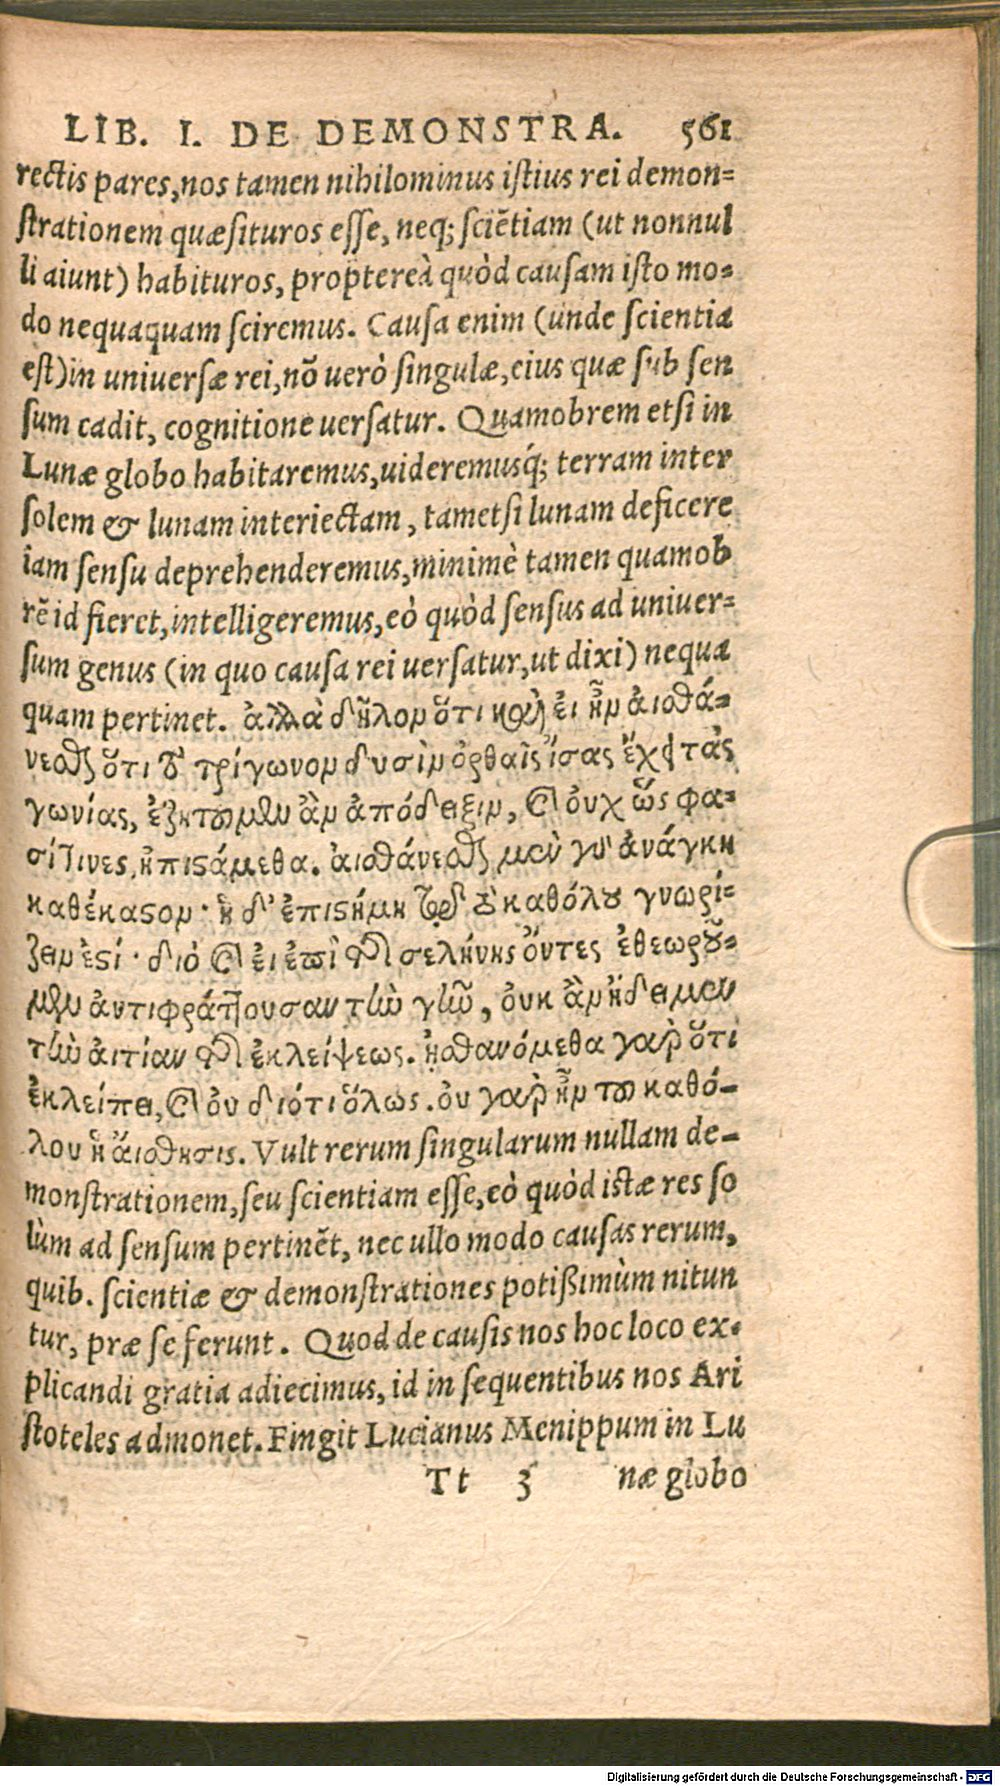 LIB. I. DE DEMONSTRA. 561
rectis pares, nos tamen nihilominus istius rei demon=
strationem quæsituros esse, neq; sciẽtiam (ut nonnul
li aiunt) habituros, proptereà quòd causam isto mo=
do nequaquam sciremus. Causa enim (unde scientia
est) in universæ rei, nõ uerò singulæ, eius quæ sub sen
sum cadit, cognitione uersatur. Quamobrem etsi in
Lunæ globo habitaremus, uideremusq́; terram inter
solem & lunam interiectam, tametsi lunam deficere
iam sensu deprehenderemus, minimè tamen quamob
rẽ id fieret, intelligeremus, eò quòd sensus ad univer=
sum genus (in quo causa rei uersatur, ut dixi) nequa
quam pertinet. ἀλλὰ δῆλον ὅτι καὶ εἰ ἦν ἀισθά=
νεσθαι ὅτι τὸ τρίγωνον δυσὶν ὀρθαῖς ἴσας ἔχει τὰς
γωνίας, ἐζητοῦμεν ἂν ἀπόδειξιν, καὶ οὐχ ὥς φα=
σί τινες, ἠπιστάμεθα. ἀισθάνεσθαι μὲν γὰρ ἀνάγκη
καθέκαστον · ἡ δ' ἐπιστήμη τῷ τὸ καθόλου γνωρί=
ζειν ἐστί · διὸ καὶ εἰ ἐπὶ τῆς σελήνης ὄντες ἐθεωροῦ=
μεν ἀντιφράττουσαν τὴν γῆν, οὐκ ἂν ᾔδειμεν
τὴν ἀιτίαν τῆς ἐκλείψεως. ᾐσθανόμεθα γὰρ ὅτι
ἐκλείπει, καὶ οὐ διότι ὅλως. οὐ γὰρ ἦν τοῦ καθό-
λου ἡ ἄισθησις. Vult rerum singularum nullam de-
monstrationem, seu scientiam esse, eò quòd istæ res so
lùm ad sensum pertinẽt, nec ullo modo causas rerum,
quib. scientiæ & demonstrationes potißimùm nitun
tur, præ se ferunt. Quod de causis nos hoc loco ex=
plicandi gratia adiecimus, id in sequentibus nos Ari
stoteles admonet. Fingit Lucianus Menippum in Lu
Tt 3 næ globo
Digitalisierung gefördert durch die Deutsche Forschungsgemeinschaft - DFG